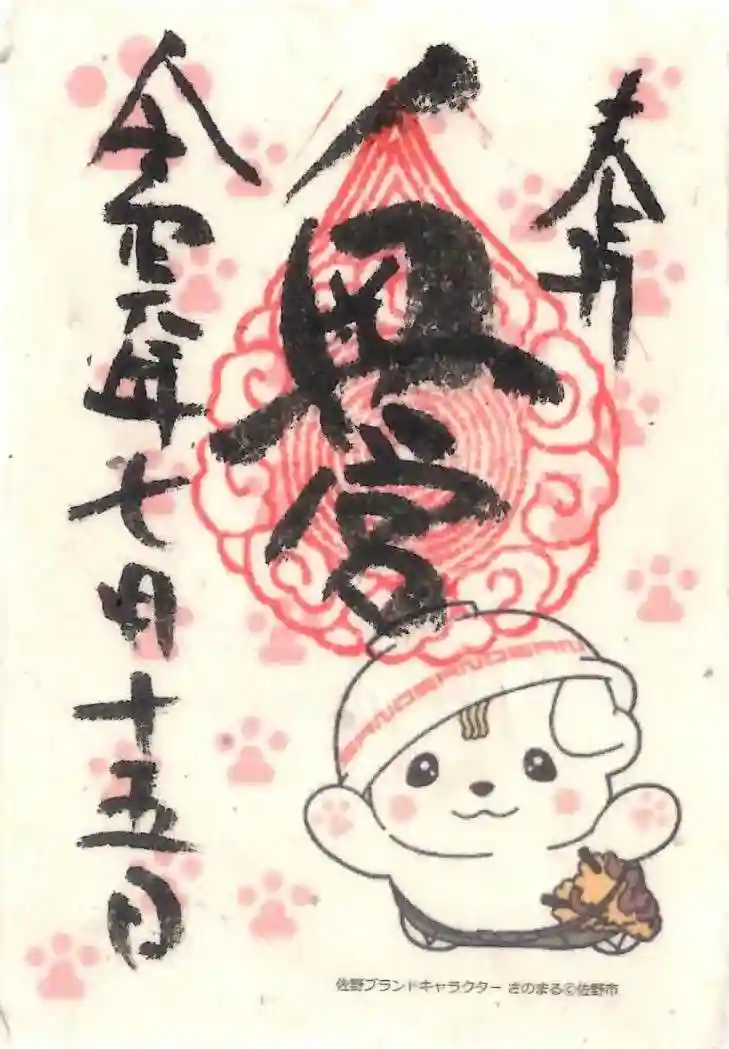 奉拝
奥宮
令和六年七月十五日
SANOSANOSAN
佐野ブランドキャラクター さのまる©佐野市